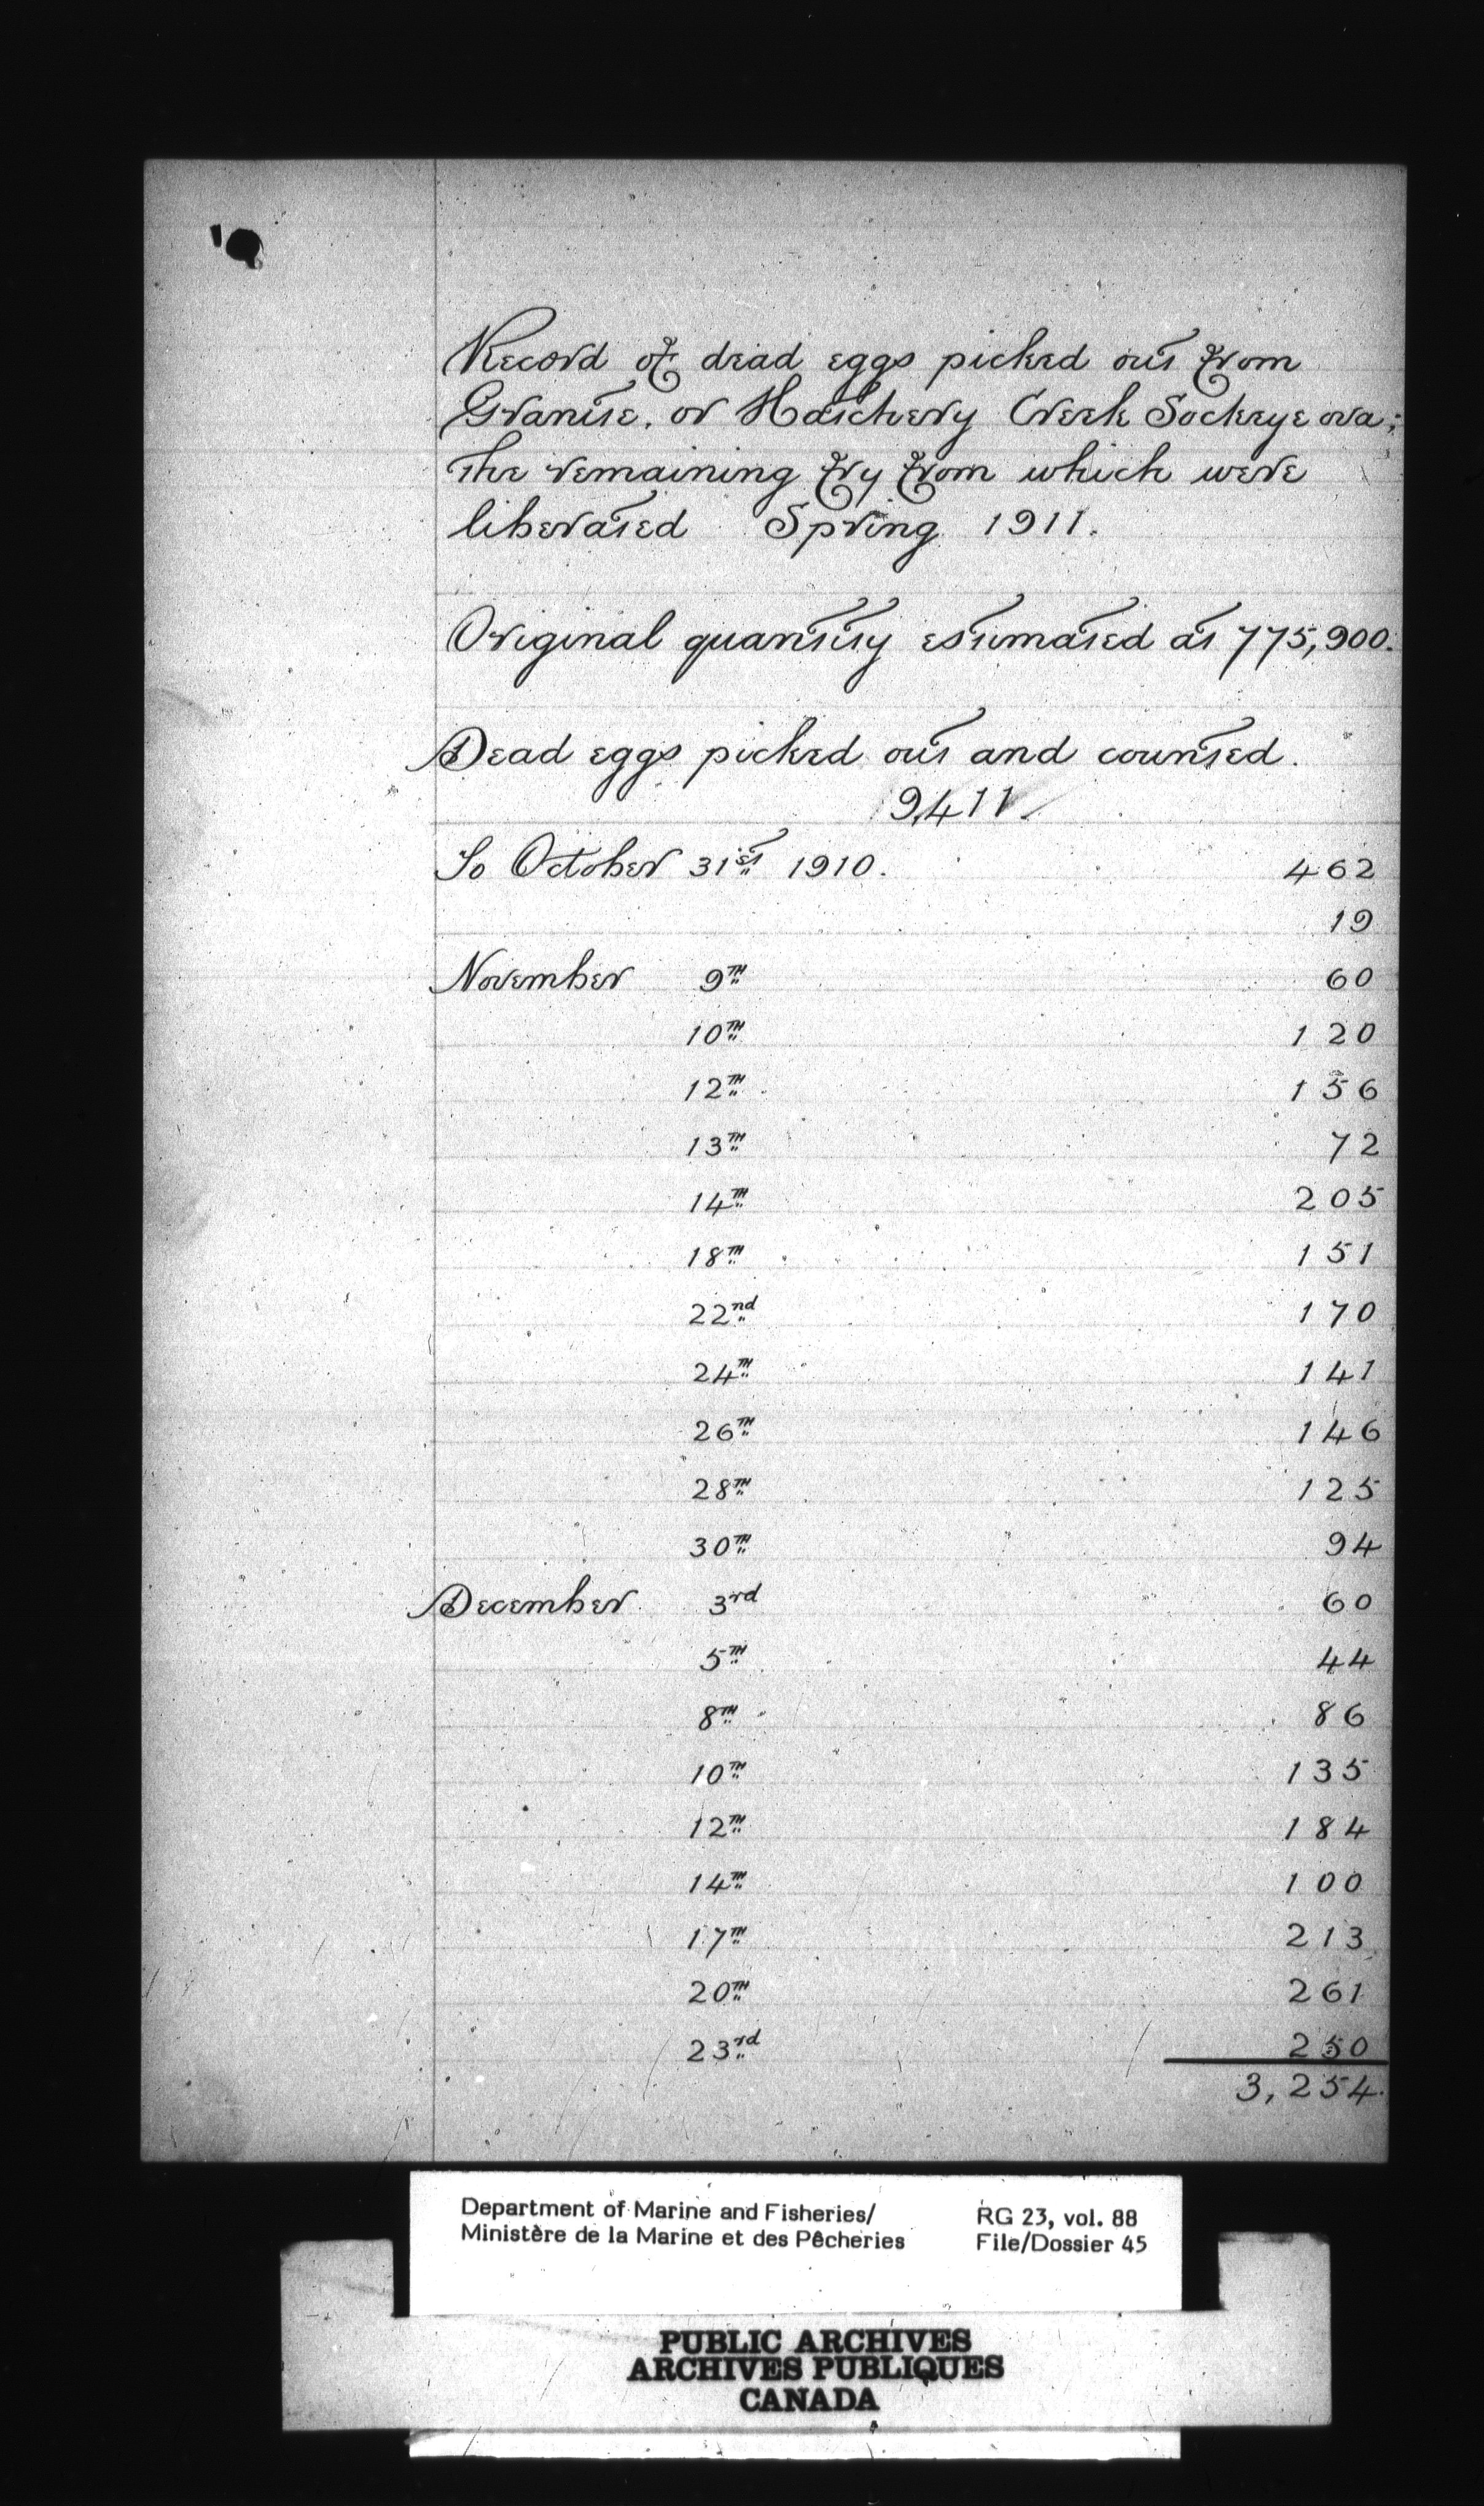 Record of dead eggs picked out from
Granite, or Hatchery Creek Sockeye ova;
the remaining fry from which were
liberated Spring 1911.
Original quantity estimated at 775,900.
Dead eggs picked out and counted.
9,411.
To October 31st 1910. 462
19
November 9TH 60
10TH 120
12TH 156
13TH 72
14TH 205
18TH 151
22nd 170
24TH 141
26TH 146
28TH 125
30TH 94
December 3rd 60
5TH 44
8TH 86
10TH 135
12TH 184
14TH 100
17TH 213
20TH 261
23rd 250
3,254.
Department of Marine and Fisheries/ RG 23, vol. 88
Ministère de la Marine et des Pêcheries File/Dossier 45
PUBLIC ARCHIVES
ARCHIVES PUBLIQUES
CANADA